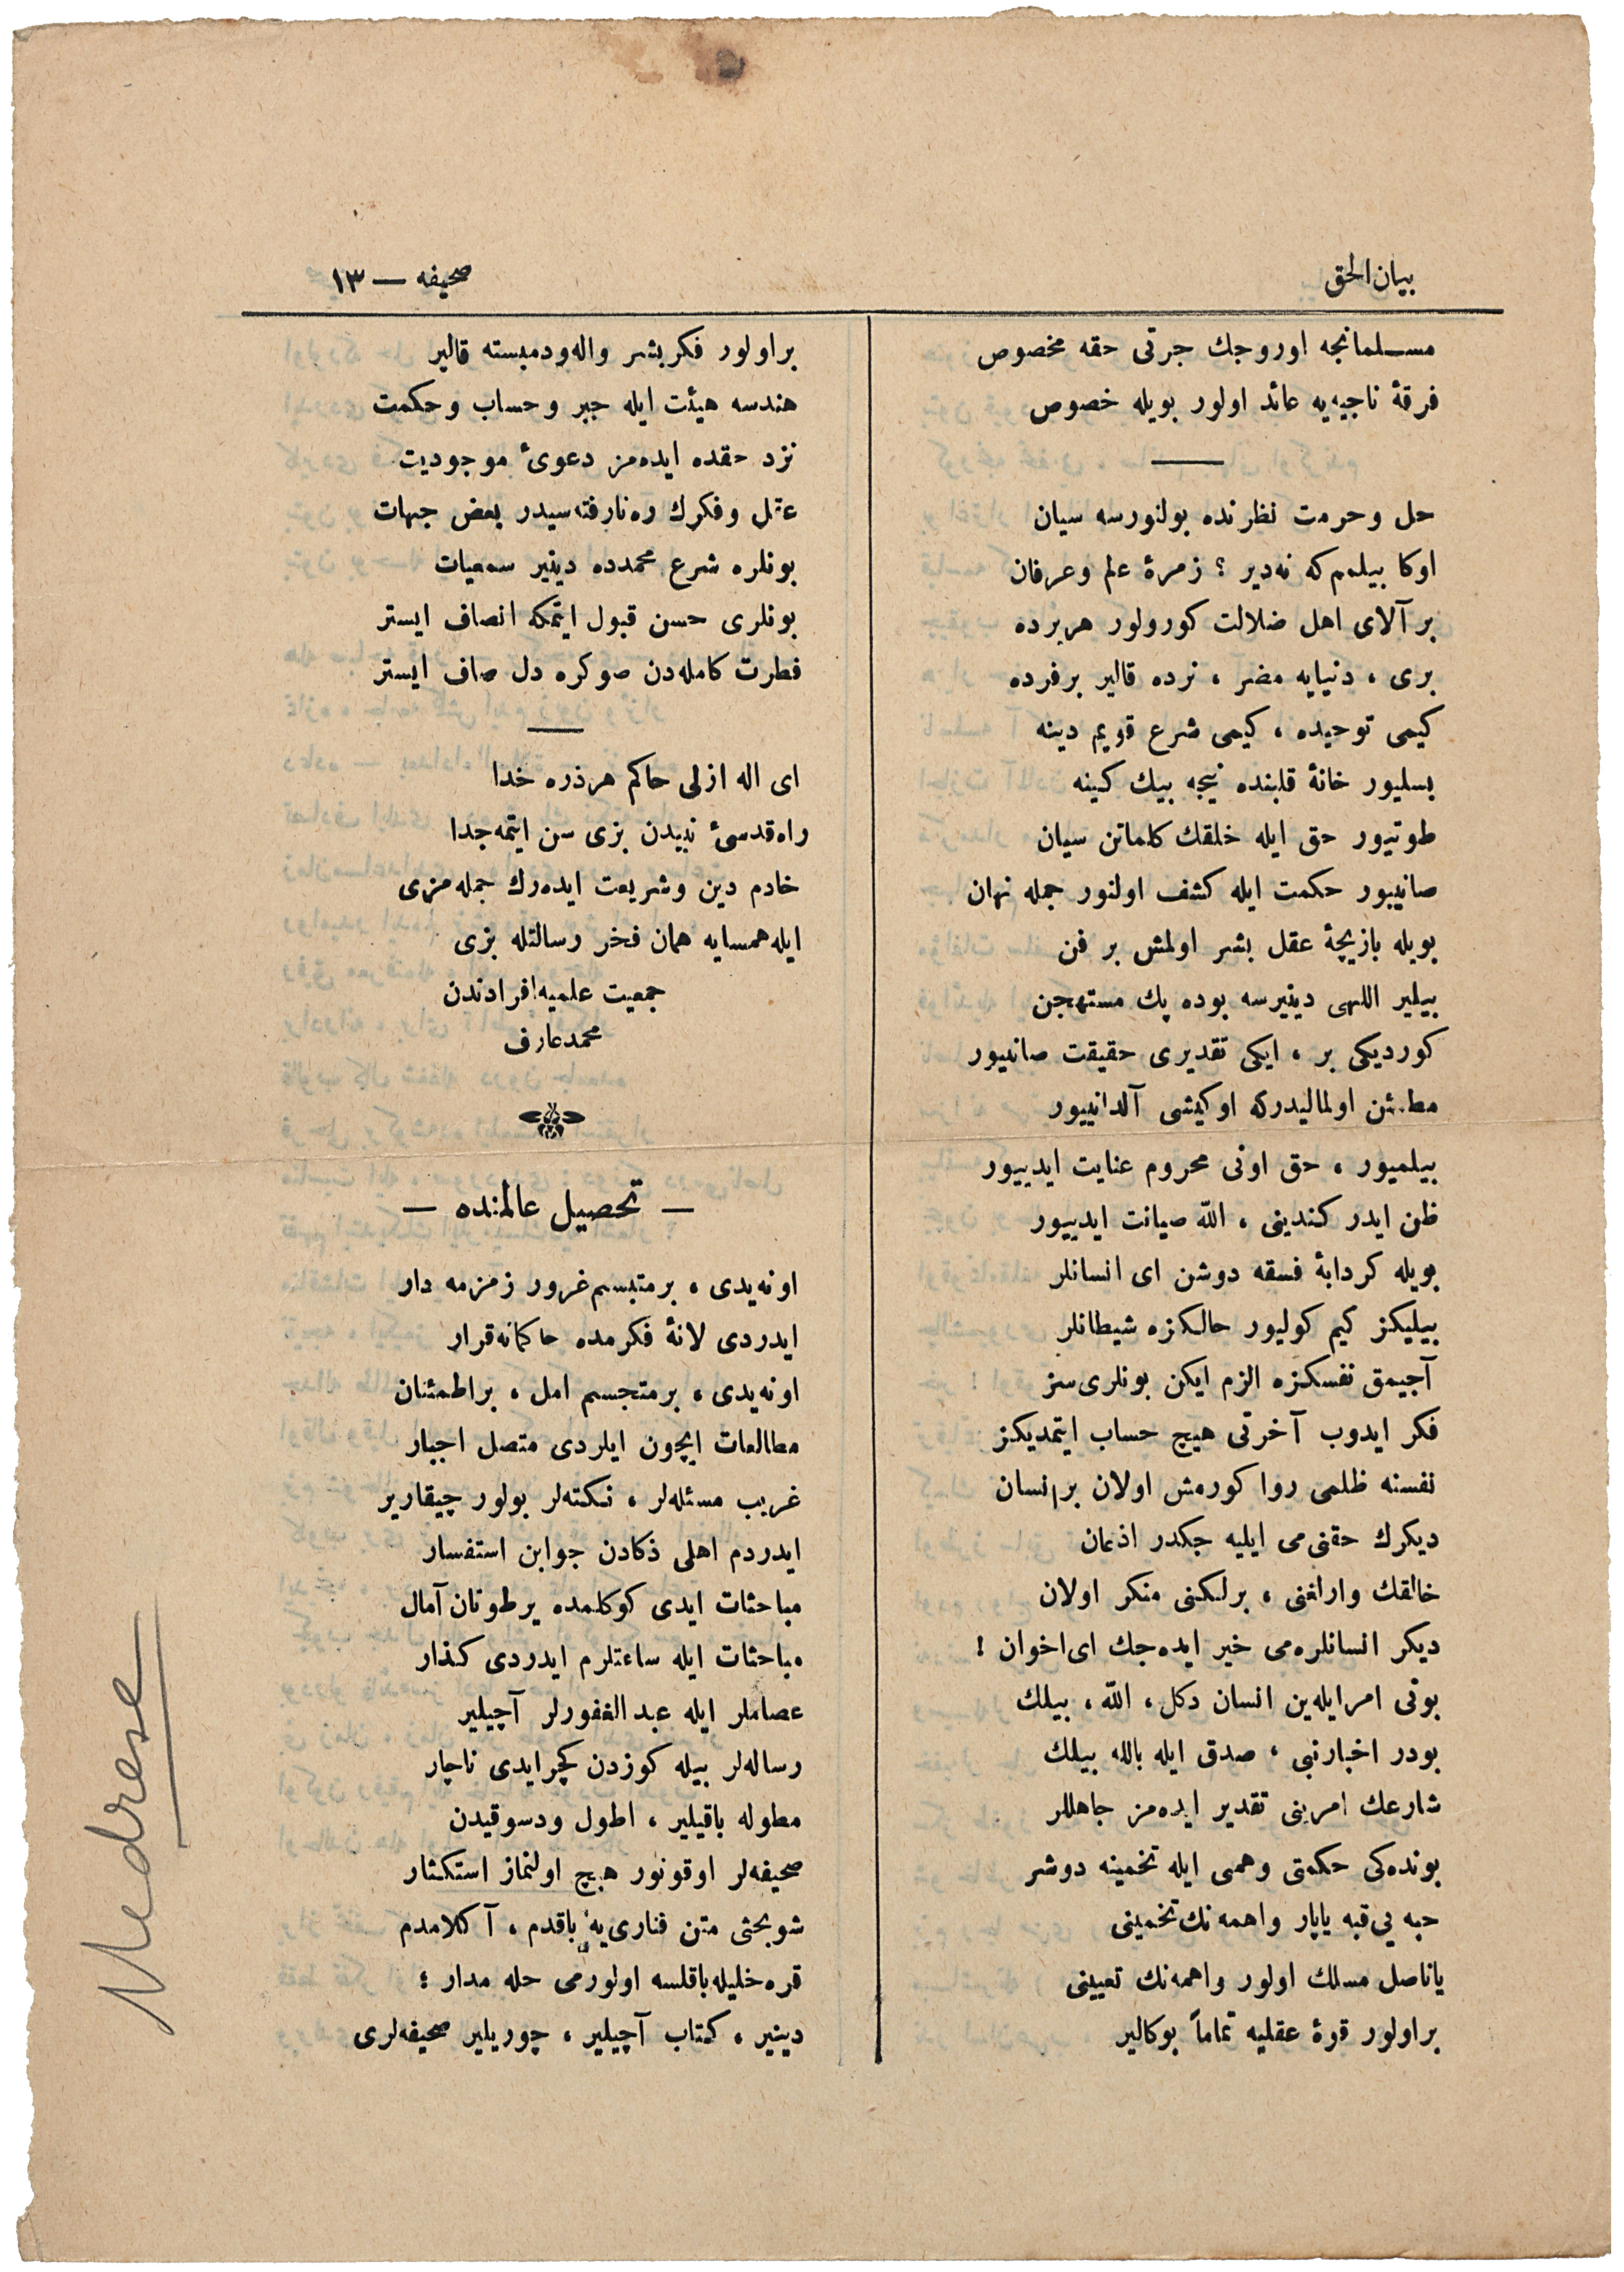 بيان الحق
صحيفه — ١٣
مسلمانجه اوروجك جرتى حقه مخصوص
فرقۀ ناجيه‌يه عائد اولور بويله خصوص
حل و حرمت نظرنده بولنورسه سيان
اوكا بيلمم كه نه‌دير ؟ زمرۀ علم و عرفان
بر آلاى اهل ضلالت كورولور هر يرده
برى ، دنيايه مضر ، نرده قالير بر فرده
كيمى توحيده ، كيمى شرع قويم دينه
بسليور خانۀ قلبنده نيجه بيك كينه
طوتيور حق ايله خلقك كلماتن سيان
صانيبور حكمت ايله كشف اولنور جمله نهان
بويله بازيچۀ عقل بشر اولمش بر فن
بيلير اللهى دينيرسه بوده پك مستهجن
كورديكى بر ، ايكى تقديرى حقيقت صانييور
مطمئن اولماليدركه او كيشى آلدانييور
بيلميور ، حق اونى محروم عنايت ايدييور
ظن ايدر كندينى ، الله صيانت ايدييور
بويله كردابۀ فسقه دوشن اى انسانلر
بيليكز كيم كوليور حالكزه شيطانلر
آجيمق نفسكزه الزم ايكن بونلرى سز
فكر ايدوب آخرتى هيچ حساب ايتمديكز
نفسنه ظلمى روا كورمش اولان بر انسان
ديكرك حقنى مى ايليه جكدر اذعان
خالقك وارلغنى ، برلكنى منكر اولان
ديكر انسانلره‌مى خير ايده‌جك اى اخوان !
بوقى امر ايله‌ين انسان دكل ، الله ، بيلك
بودر اخبار نبى ، صدق ايله بالله بيلك
شارعك امرينى تقدير ايده‌مز جاهللر
بونده‌كى حكمتى وهمى ايله تخمينه دوشر
حبه يى قبه ياپار واهمه نك تخمينى
يا ناصل مسلك اولور واهمه‌نك تعيينى
بر اولور قوۀ عقليه تماماً بوكالير
بر اولور فكر بشر واله و دمبسته قالير
هندسه هيئت ايله جبر و حساب و حكمت
نزد حقده ايده‌مز دعوئ موجوديت
عقل و فكرك ره نارفته سيدر بعض جهات
بونلره شرع محمدده دينير سمعيات
بونلرى حسن قبول ايتمكه انصاف ايستر
فطرت كامله‌دن صوكره دل صاف ايستر
اى اله ازلى حاكم هر ذره خدا
راه قدسئ نبيدن بزى سن ايتمه جدا
خادم دين و شريعت ايده‌رك جمله‌مزى
ايله همسايه همان فخر رسالتله بزى
جمعيت علميه افرادندن
محمد عارف
— تحصيل عالمنده —
او نه‌يدى ، بر متبسم غرور زمزمه دار
ايدردى لانۀ فكرمده حاكمانه قرار
او نه‌يدى ، بر متجسم امل ، بر اطمئنان
مطالعات ايچون ايلردى متصل اجبار
غريب مسئله‌لر ، نكته‌لر بولور چيقارير
ايدردم اهلى ذكادن جوابن استفسار
مباحثات ايدى كوكلمده ير طوتان آمال
مباحثات ايله ساعتلرم ايدردى كذار
عصاملر ايله عبد الغفورلر آچيلير
رساله‌لر بيله كوزدن كچر ايدى ناچار
مطوله باقيلير ، اطول و دسوقيدن
صحيفه‌لر اوقونور هيچ اولنماز استكثار
شو بحثى متن فنارى يه باقدم ، آ كلامدم
قره خليله باقلسه اولورمى حله مدار ؛
دينير ، كتاب آچيلير ، چوريلير صحيفه‌لرى
Medrese